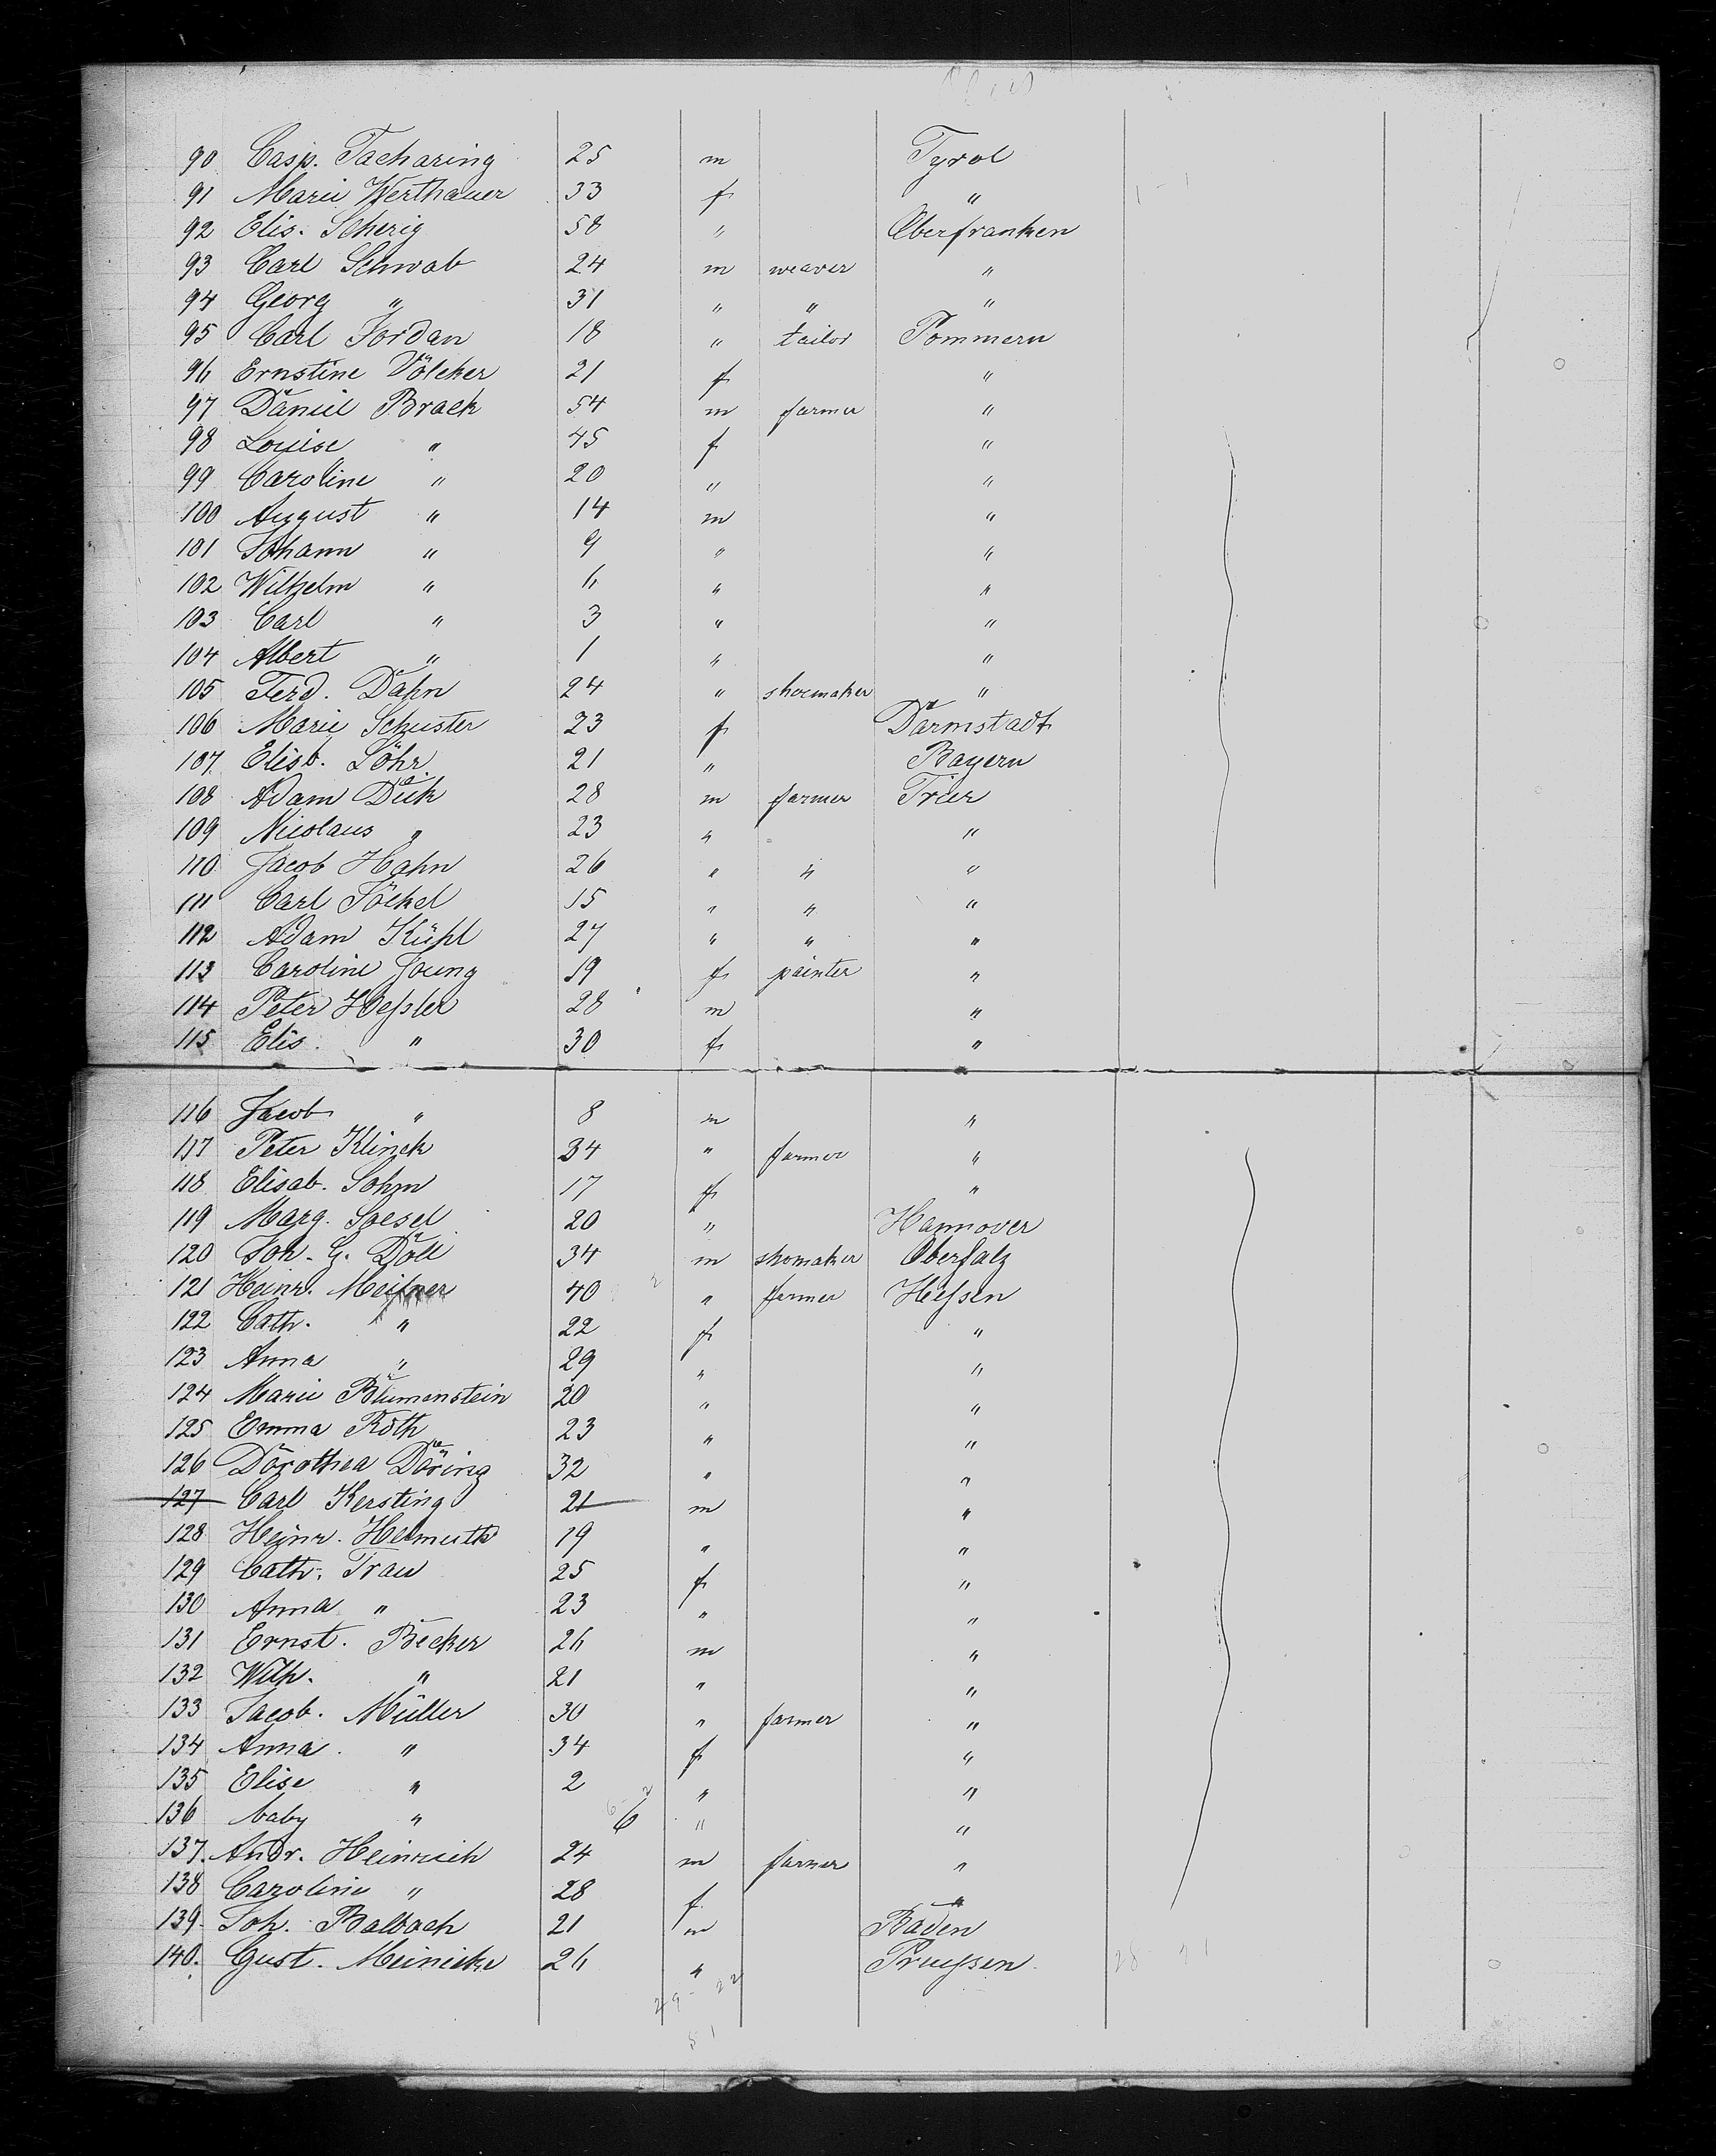 90 Casp. Tacharing 25 m Tyrol
91 Marie Werthauer 33 f "
92 Elis. Scherig 58 " Oberfranken
93 Carl Schwab 24 m weaver "
94 Georg " 31 " " "
95 Carl Jordan 18 " tailor Pommern
96 Ernstine Völcker 21 f "
97 Daniel Brack 54 m farmer "
98 Louise " 45 f "
99 Caroline " 20 " "
100 August " 14 m "
101 Johann " 9 " "
102 Wilhelm " 6 " "
103 Carl " 3 " "
104 Albert " 1 " "
105 Ferd. Dahn 24 " shoemaker "
106 Marie Schuster 23 f Darmstadt
107 Elisb. Löhr 21 " Bayern
108 Adam Dick 28 m farmer Trier
109 Nicolaus " 23 " "
110 Jacob Hahn 26 " " "
111 Carl Jöckel 15 " " "
112 Adam Kühl 27 " " "
113 Caroline Joung 19 f painter "
114 Peter Hessler 28 m "
115 Elis. " 30 f "
116 Jacob " 8 m "
117 Peter Klinck 34 " farmer "
118 Elisab. Sohm 17 f "
119 Marg. Soesel 20 " Hannover
120 Joh. G. Döll 34 m shomaker Oberfalz
121 Heinr. Meisner 40 " farmer Hessen
122 Cath. " 22 f "
123 Anna " 29 " "
124 Marie Blumenstein 20 " "
125 Emma Roth 23 " "
126 Dorothea Döring 32 " "
127 Carl Kersting 21 m "
128 Heinr. Helmuth 19 " "
129 Cath. Trau 25 f "
130 Anna " 23 " "
131 Ernst. Becker 26 m "
132 Wilh. " 21 " "
133 Jacob. Müller 30 " farmer "
134 Anna. " 34 f "
135 Elise " 2 " "
136 baby " 6 " "
137. Andr. Heinrich 24 m farmer "
138 Caroline " 28 f "
139. Joh. Balbach 21 m Baden
140. Gust. Meinicke 26 " Preussen
29 - 22
51